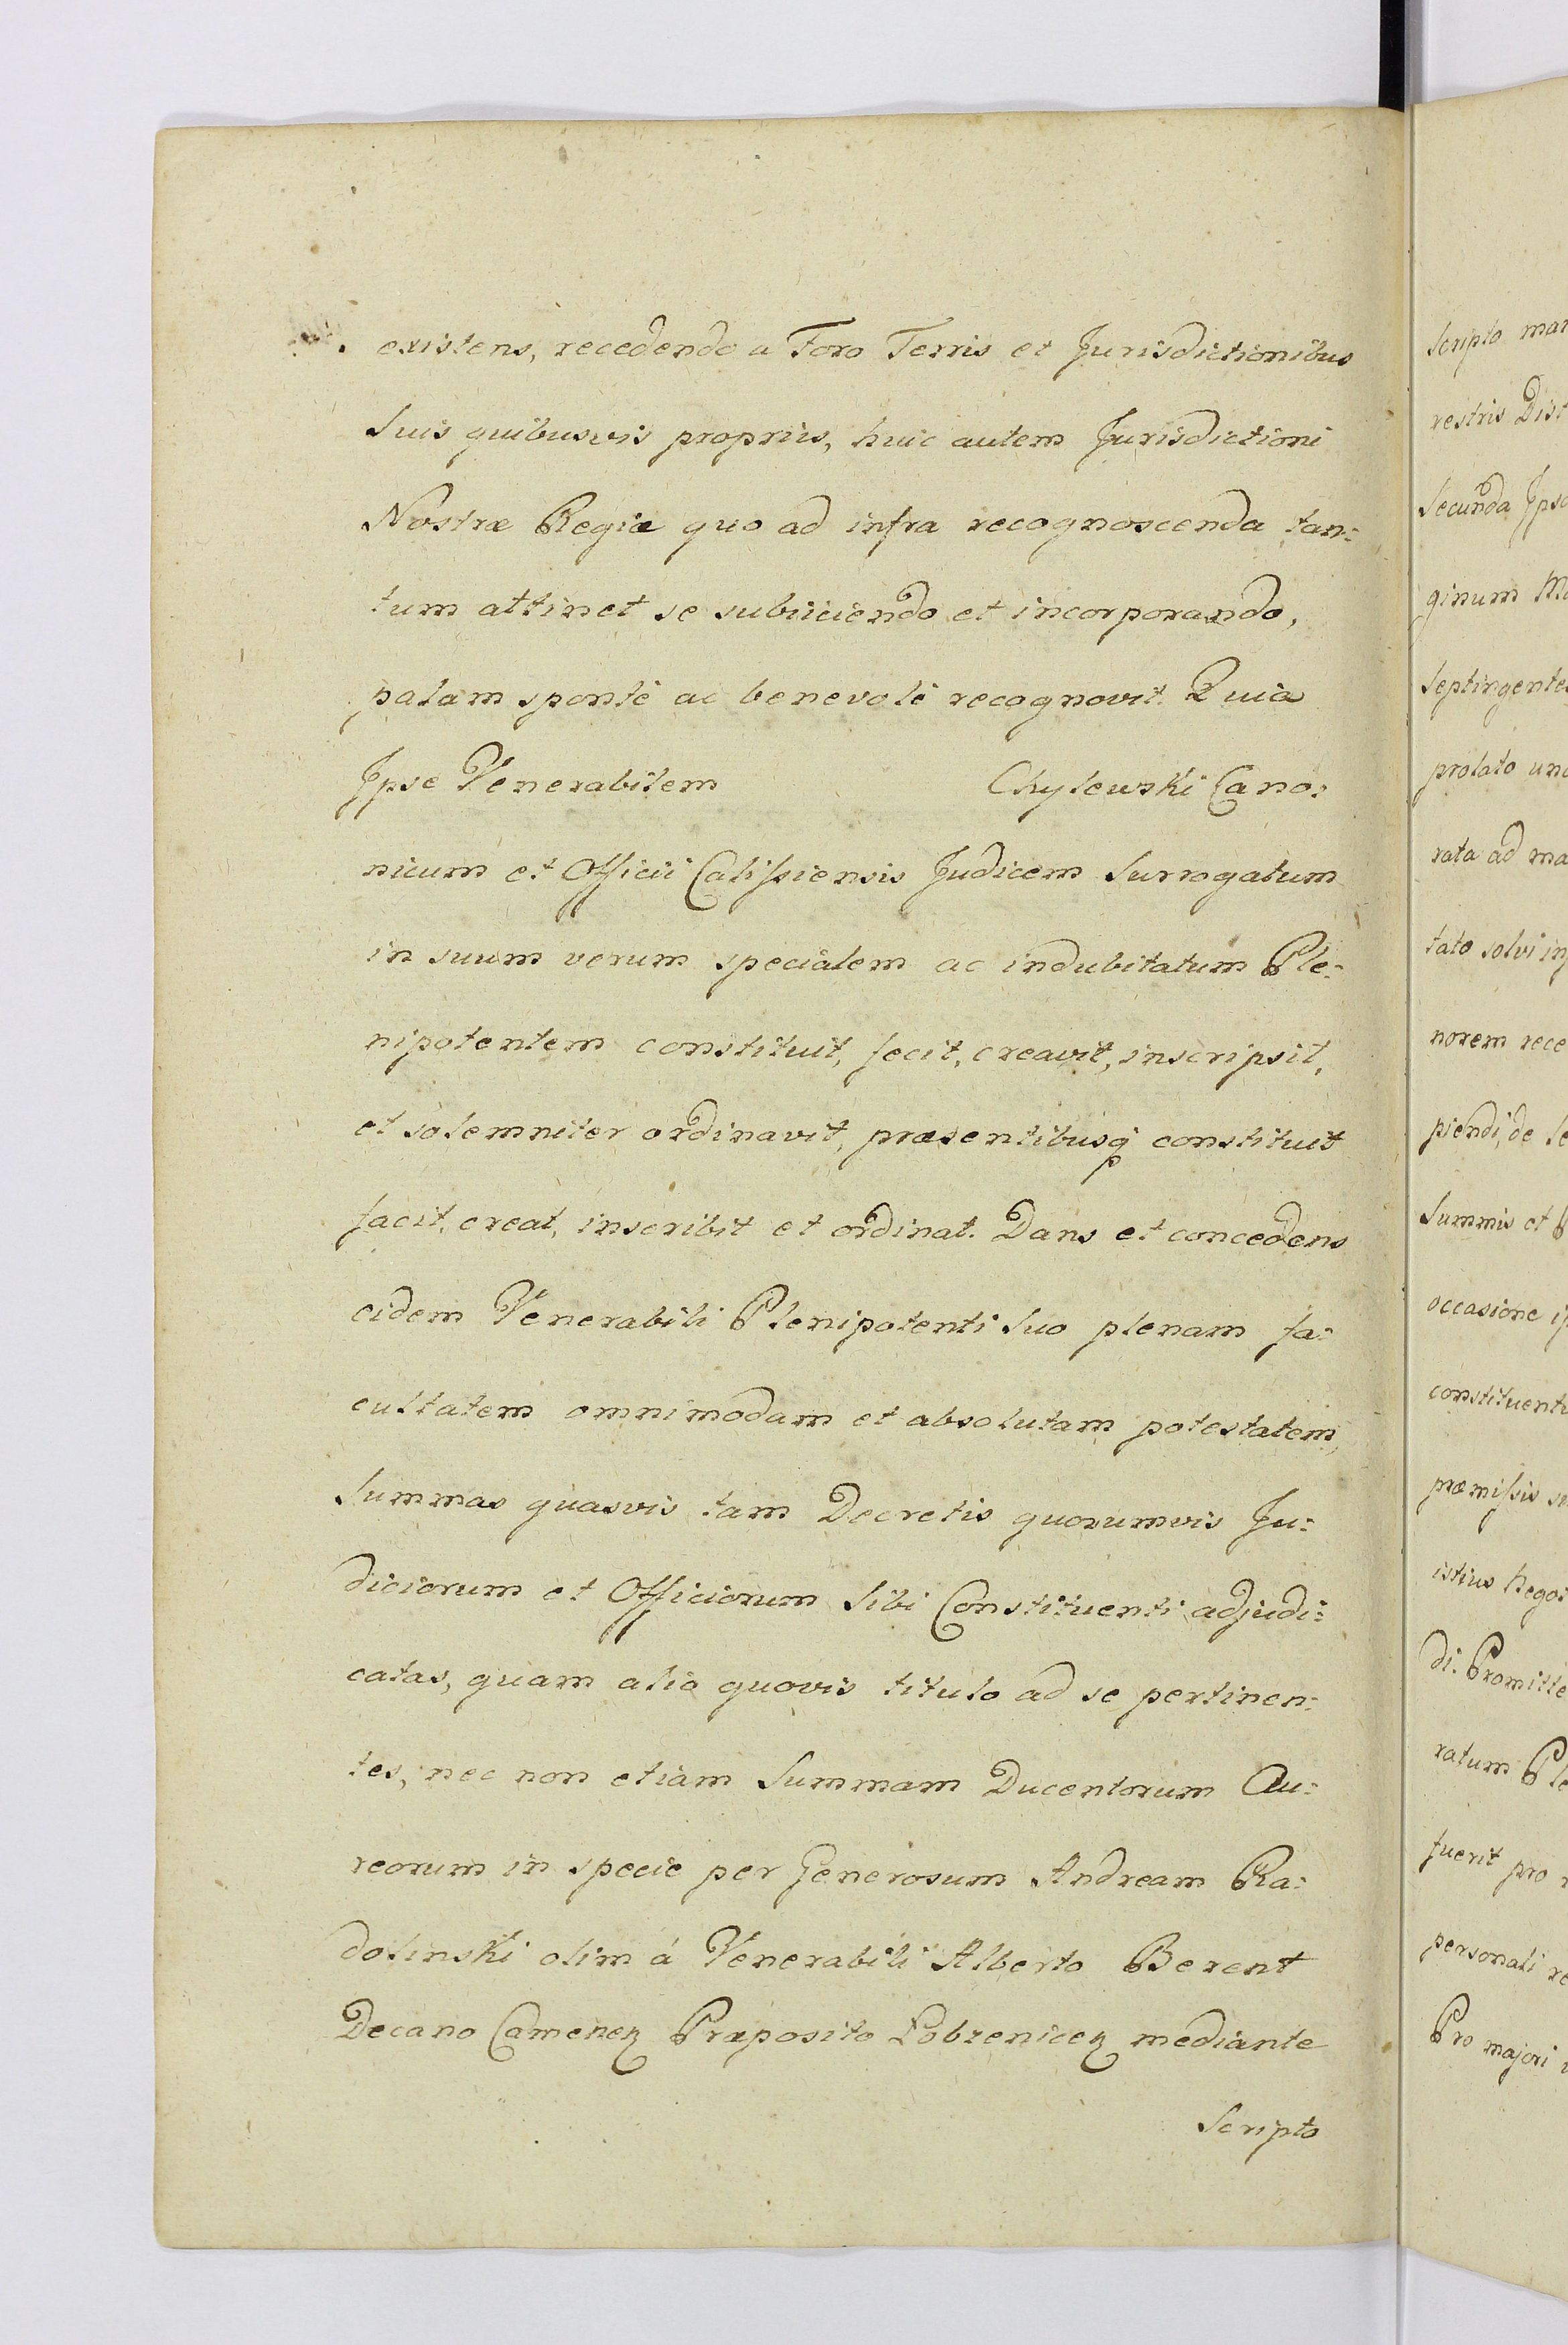 existens, recedendo a Foro Terris et Jurisdictionibus
Suis quibusvis propriis, huic autem Jurisdictioni
Nostræ Regiæ quo ad infra recognoscenda tan:
tum attinet se subiiciendo et incorporando,
palam sponté ac benevolé recognovit. Quia
Ipse Venerabilem Chylewski Cano:
nicum et Officii Calissiensis Judicem Surrogatum
in suum verum specialem ac indubitatum Ple:
nipotentem constituit, fecit, creavit, inscripsit,
et solemniter ordinavit, præsentibusq constituit
facit, creat, inscribit et ordinat. Dans et concedens
eidem Venerabili Plenipotenti Suo plenam fa:
cultatem omnimodam et absolutam potestatem,
Summas quasvis tam Decretis quorumvis Ju:
diciorum et Officiorum Sibi Constituenti adjudi:
catas, quam alio quovis titulo ad se pertinen:
tes, nec non etiam Summam Ducentorum Au:
reorum in specie per Generosum Andream Ra:
dolinski olim á Venerabili Alberto Berent
Decano Camenez Præposito Lobzenicez mediante
Scripto
scripto
restris Dist
Secunda Ipso
ginum
septingente
prolato
rata ad
tato solvi
norem rece
piendi, de
Summis et
occasione
constituenti
præmissis
istius Nego
di. Promitte
ratum Ple
fuerit pro
personali
Pro majori